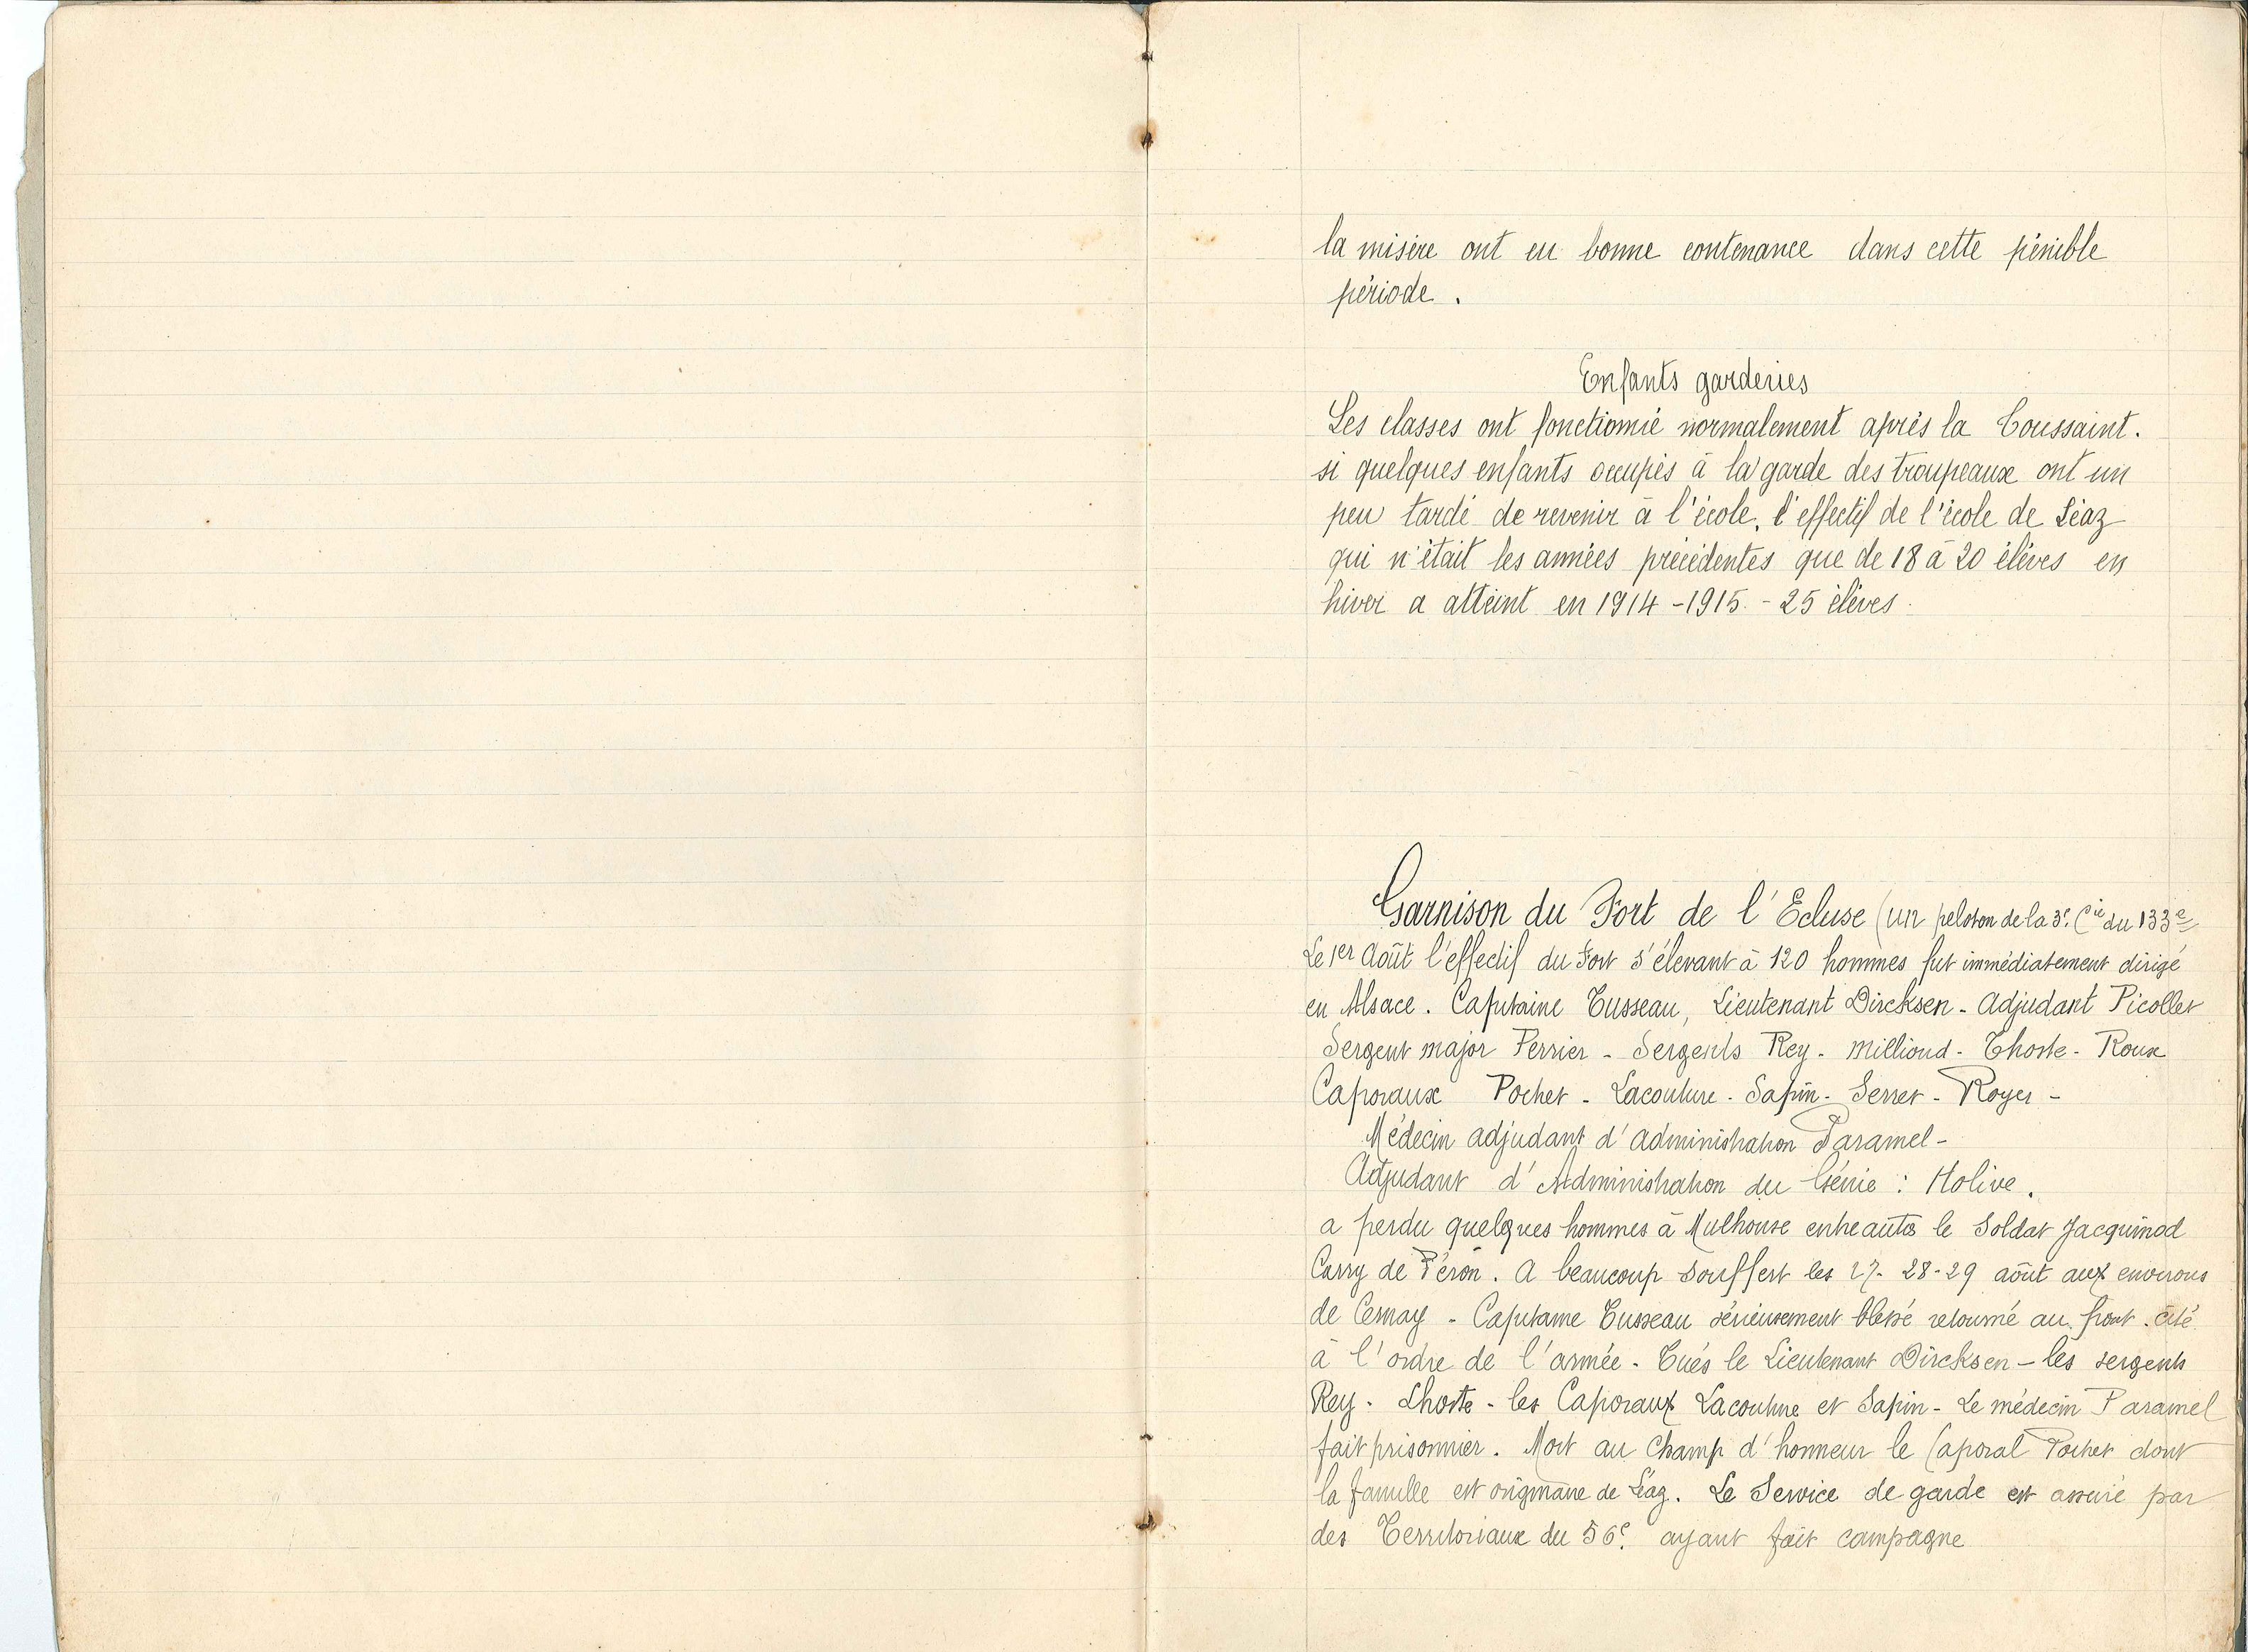 la misère ont eu bonne contenance dans cette pénible
période.
Enfants garderies
Les classes ont fonctionné normalement après la Toussaint.
si quelques enfants occupés à la garde des troupeaux ont un
peu tardé de revenir à l'école, l'effectif de l'école de Léaz
qui n'était les années précédentes que de 18 à 20 élèves en
hiver a atteint en 1914-1915 - 25 élèves.
Garnison du Fort de l'Ecluse (un peloton de la 3e Cie du 133e
Le 1er Août l'effectif du Fort s'élevant à 120 hommes fut immédiatement dirigé
en Alsace. Capitaine Tusseau, Lieutenant Dircksen - Adjudant Picollet
Sergent major Perrier - Sergents Rey - Milliond - Lhoste - Roux
Caporaux Pochet - Lacouture - Sapin - Serret - Royer -
Médecin adjudant d'administration Paramel -
Adjudant d'Administration du Génie : Holive.
a perdu quelques hommes à Mulhouse entre autres le Soldat Jacquinod
Carry de Péron. A beaucoup souffert les 27-28-29 août aux environs
de Cernay - Capitaine Tusseau sérieusement blessé retourné au front. cité
à l'ordre de l'armée - Tués le Lieutenant Dircksen - les sergents
Rey - Lhoste - les Caporaux Lacouture et Sapin - Le médecin Paramel
fait prisonnier. Mort au Champ d'honneur le Caporal Pochet dont
la famille est originaire de Léaz. Le Service de garde est assuré par
des Territoriaux du 56e ayant fait campagne